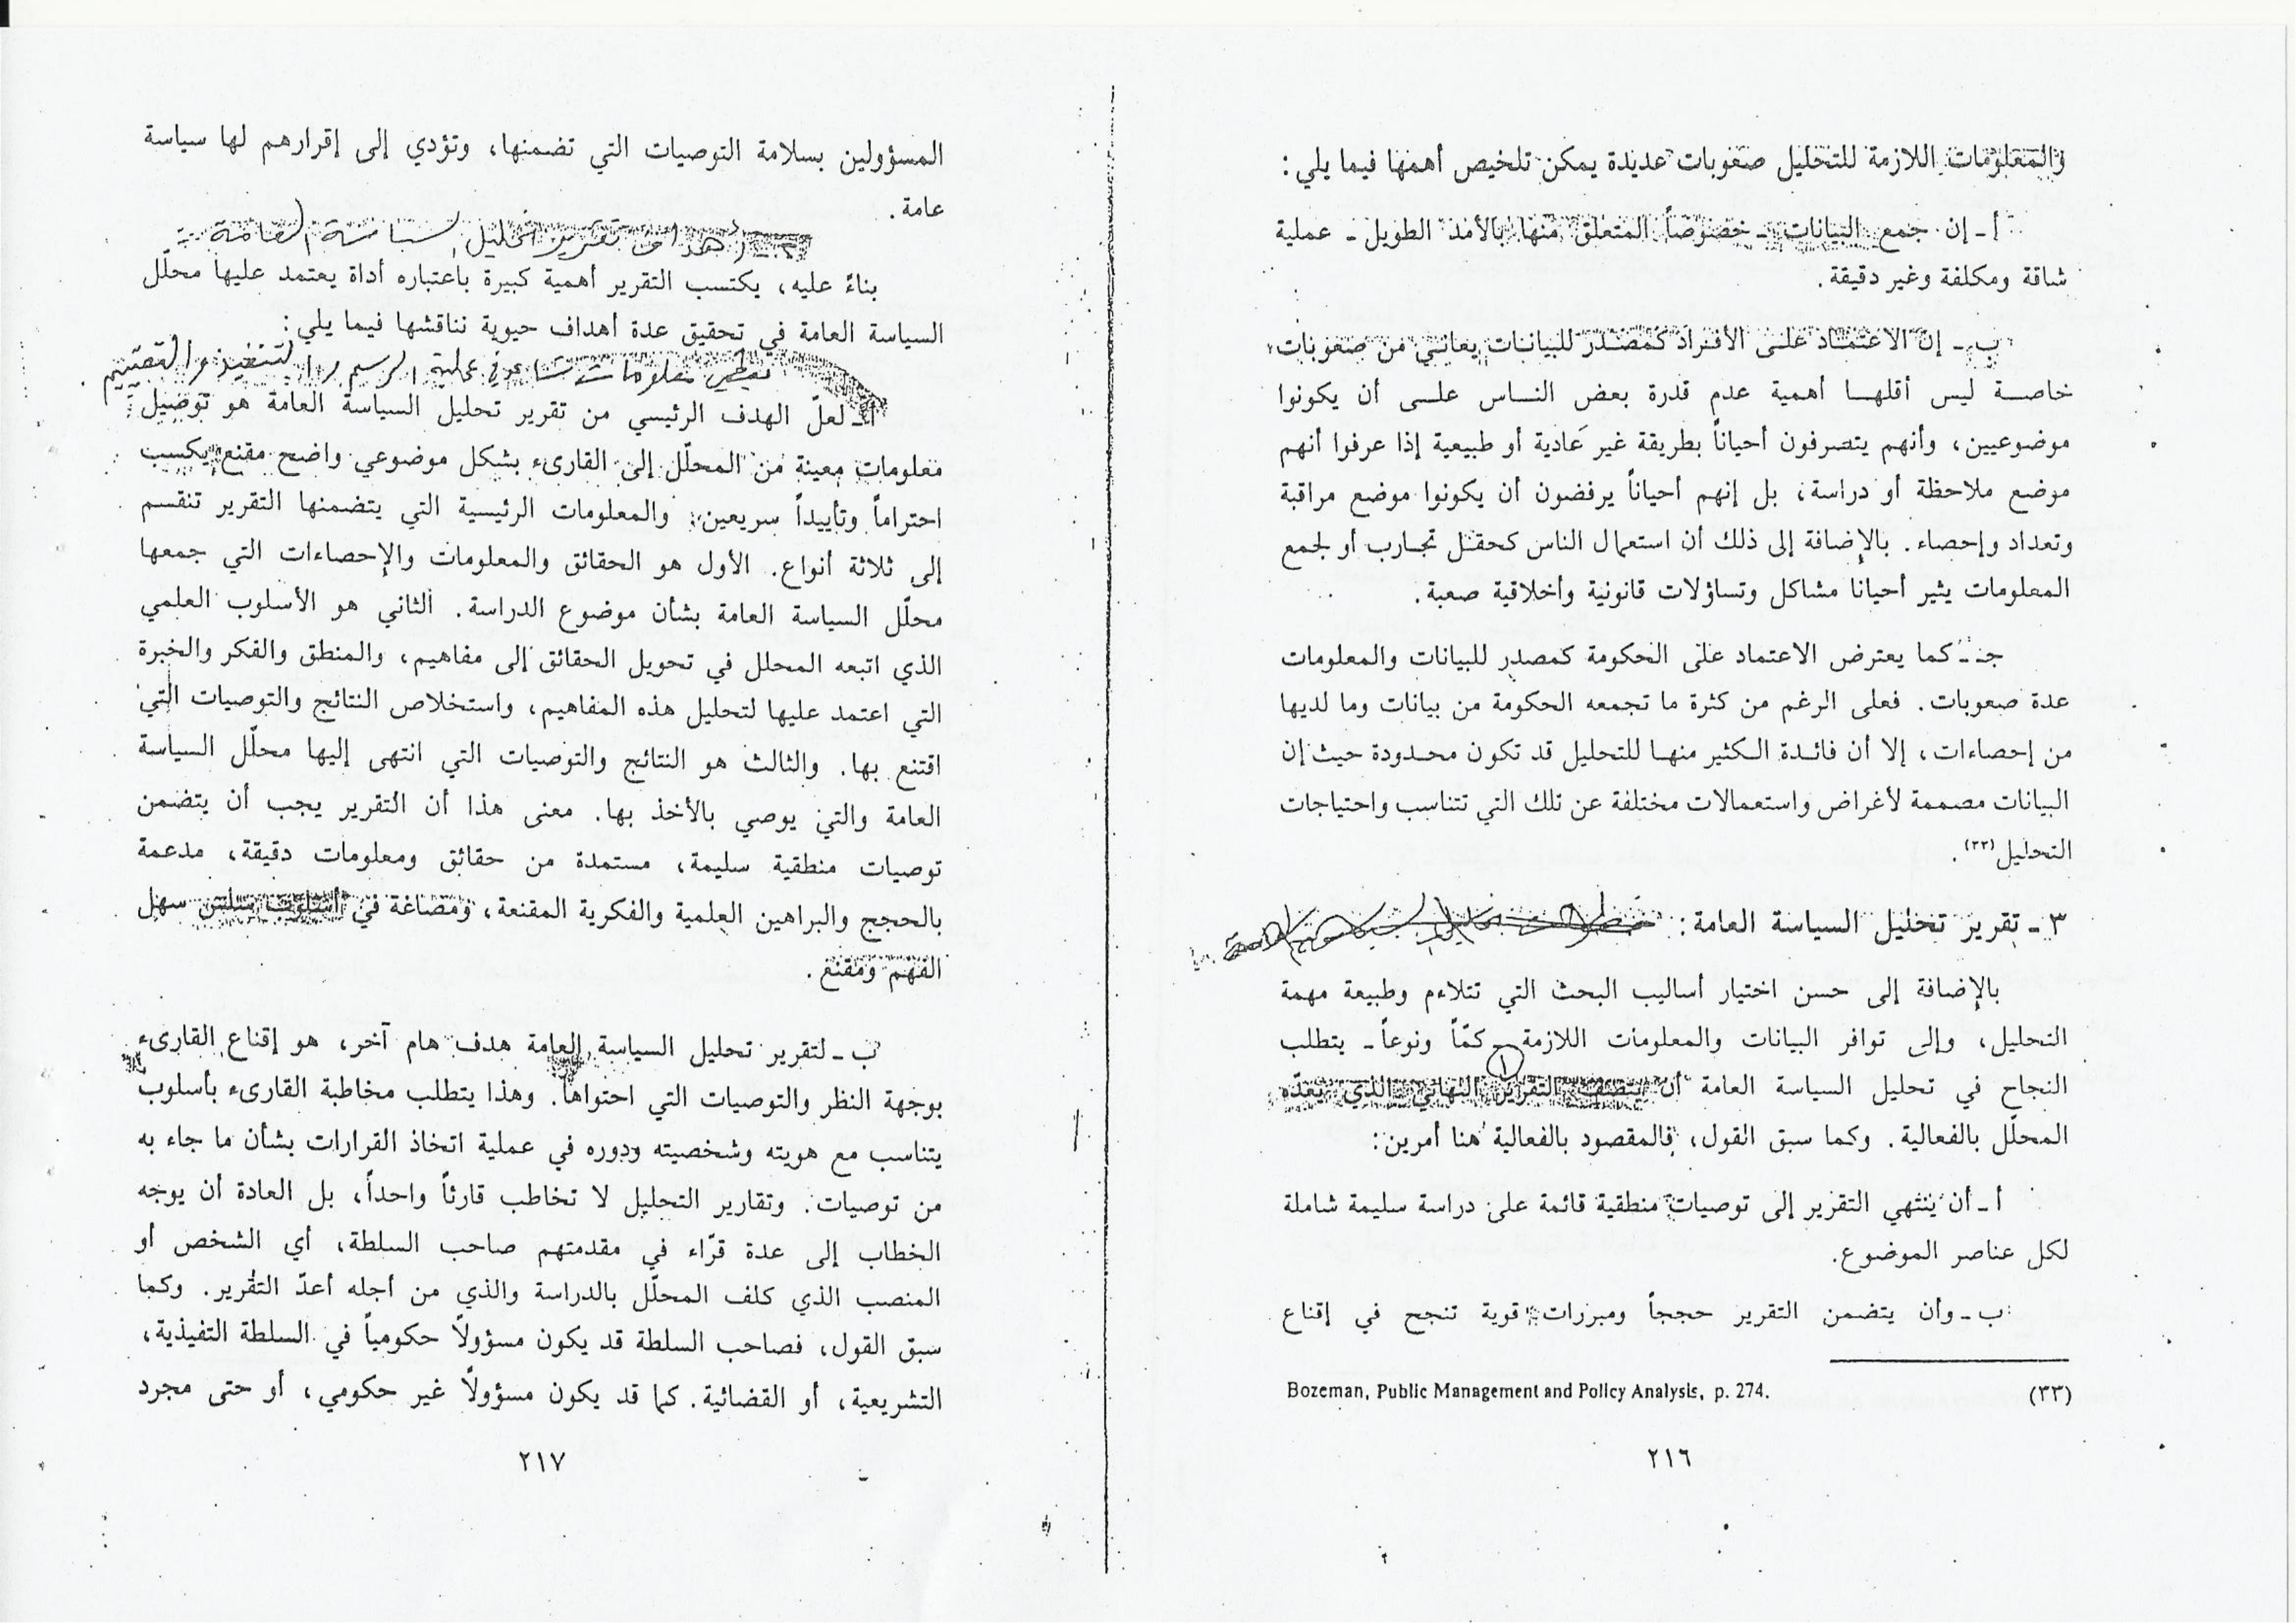 والمعلومات اللازمة للتحليل صعوبات عديدة يمكن تلخيص أهمها فيما يلي:
أ ـ إن جمع البيانات ـ خصوصاً المتعلق منها بالأمد الطويل ـ عملية
شاقة ومكلفة وغير دقيقة.
ب ـ إن الاعتماد على الأفراد كمصدر للبيانات يعاني من صعوبات
خاصة ليس أقلها أهمية عدم قدرة بعض الناس على أن يكونوا
موضوعيين، وأنهم يتصرفون أحياناً بطريقة غير عادية أو طبيعية إذا عرفوا أنهم
موضع ملاحظة أو دراسة، بل إنهم أحياناً يرفضون أن يكونوا موضع مراقبة
وتعداد وإحصاء. بالإضافة إلى ذلك أن استعمال الناس كحقل تجارب أو لجمع
المعلومات يثير أحيانا مشاكل وتساؤلات قانونية وأخلاقية صعبة.
جـ ـ كما يعترض الاعتماد على الحكومة كمصدر للبيانات والمعلومات
عدة صعوبات. فعلى الرغم من كثرة ما تجمعه الحكومة من بيانات وما لديها
من إحصاءات، إلا أن فائدة الكثير منها للتحليل قد تكون محدودة حيث إن
البيانات مصممة لأغراض واستعمالات مختلفة عن تلك التي تتناسب واحتياجات
التحليل(٣٣).
٣ ـ تقرير تحليل السياسة العامة:
بالإضافة إلى حسن اختيار أساليب البحث التي تتلاءم وطبيعة مهمة
التحليل، وإلى توافر البيانات والمعلومات اللازمة ـ كمّاً ونوعاً ـ يتطلب
النجاح في تحليل السياسة العامة أن يتصف التقرير النهائي الذي يعدّه
المحلّل بالفعالية. وكما سبق القول، فالمقصود بالفعالية هنا أمرين:
أ ـ أن ينتهي التقرير إلى توصيات منطقية قائمة على دراسة سليمة شاملة
لكل عناصر الموضوع.
ب ـ وأن يتضمن التقرير حججاً ومبررات قوية تنجح في إقناع
(٣٣) Bozeman, Public Management and Policy Analysis, p. 274.
٢١٦
المسؤولين بسلامة التوصيات التي تضمنها، وتؤدي إلى إقرارهم لها سياسة
عامة.
أهداف تقرير تحليل السياسة العامة
بناءً عليه، يكتسب التقرير أهمية كبيرة باعتباره أداة يعتمد عليها محلّل
السياسة العامة في تحقيق عدة أهداف حيوية نناقشها فيما يلي:
معلومات تساعد في عملية الرسم والتنفيذ والتقييم
أ ـ لعلّ الهدف الرئيسي من تقرير تحليل السياسة العامة هو توصيل
معلومات معينة من المحلّل إلى القارىء بشكل موضوعي واضح مقنع يكسب
احتراماً وتأييداً سريعين. والمعلومات الرئيسية التي يتضمنها التقرير تنقسم
إلى ثلاثة أنواع. الأول هو الحقائق والمعلومات والإحصاءات التي جمعها
محلّل السياسة العامة بشأن موضوع الدراسة. الثاني هو الأسلوب العلمي
الذي اتبعه المحلل في تحويل الحقائق إلى مفاهيم، والمنطق والفكر والخبرة
التي اعتمد عليها لتحليل هذه المفاهيم، واستخلاص النتائج والتوصيات التي
اقتنع بها. والثالث هو النتائج والتوصيات التي انتهى إليها محلّل السياسة
العامة والتي يوصي بالأخذ بها. معنى هذا أن التقرير يجب أن يتضمن
توصيات منطقية سليمة، مستمدة من حقائق ومعلومات دقيقة، مدعمة
بالحجج والبراهين العلمية والفكرية المقنعة، ومصاغة في أسلوب سلس سهل
الفهم ومقنع.
ب ـ لتقرير تحليل السياسة العامة هدف هام آخر، هو إقناع القارىء
بوجهة النظر والتوصيات التي احتواها. وهذا يتطلب مخاطبة القارىء بأسلوب
يتناسب مع هويته وشخصيته ودوره في عملية اتخاذ القرارات بشأن ما جاء به
من توصيات. وتقارير التحليل لا تخاطب قارئاً واحداً، بل العادة أن يوجه
الخطاب إلى عدة قرّاء في مقدمتهم صاحب السلطة، أي الشخص أو
المنصب الذي كلف المحلّل بالدراسة والذي من أجله أعدّ التقرير. وكما
سبق القول، فصاحب السلطة قد يكون مسؤولاً حكومياً في السلطة التفيذية،
التشريعية، أو القضائية. كما قد يكون مسؤولاً غير حكومي، أو حتى مجرد
٢١٧